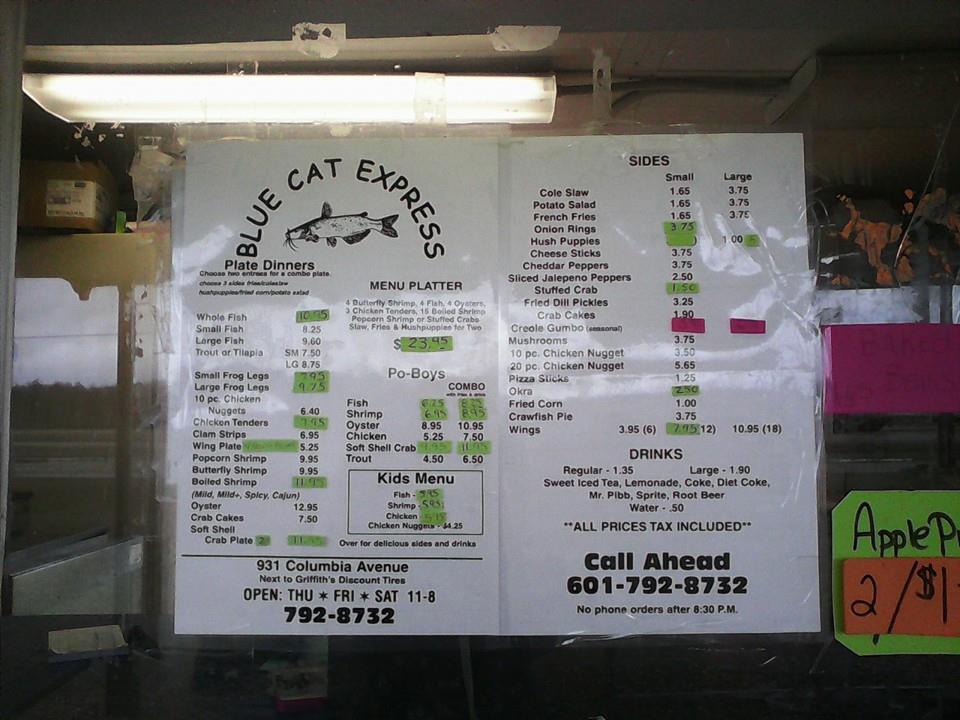 BLUE CAT EXPRESS
Plate Dinners
Choose two entrees for a combo plate.
choose 3 sides fries/coleslaw
hushpuppies/fried corn/potato salad
Whole Fish 10.95
Small Fish 8.25
Large Fish 9.60
Trout or Tilapia SM 7.50
LG 8.75
Small Frog Legs 7.95
Large Frog Legs 9.75
10 pc. Chicken
Nuggets 6.40
Chicken Tenders 7.95
Clam Strips 6.95
Wing Plate 5.25
Popcorn Shrimp 9.95
Butterfly Shrimp 9.95
Boiled Shrimp 11.95
(Mild, Mild+, Spicy, Cajun)
Oyster 12.95
Crab Cakes 7.50
Soft Shell
Crab Plate 2 11.95
MENU PLATTER
4 Butterfly Shrimp, 4 Fish, 4 Oysters,
3 Chicken Tenders, 15 Boiled Shrimp
Popcorn Shrimp or Stuffed Crabs
Slaw, Fries & Hushpuppies for Two
$23.95
Po-Boys
COMBO
with fries & drink
Fish 6.25 8.25
Shrimp 6.95 8.95
Oyster 8.95 10.95
Chicken 5.25 7.50
Soft Shell Crab 9.95 11.95
Trout 4.50 6.50
Kids Menu
Fish - 5.95
Shrimp - 5.95
Chicken - 5.95
Chicken Nuggets - $4.25
Over for delicious sides and drinks
931 Columbia Avenue
Next to Griffith's Discount Tires
OPEN: THU ✶ FRI ✶ SAT 11-8
792-8732
SIDES
Small Large
Cole Slaw 1.65 3.75
Potato Salad 1.65 3.75
French Fries 1.65 3.75
Onion Rings 3.75
Hush Puppies 1.00
Cheese Sticks 3.75
Cheddar Peppers 3.75
Sliced Jalepeno Peppers 2.50
Stuffed Crab 1.50
Fried Dill Pickles 3.25
Crab Cakes 1.90
Creole Gumbo (seasonal)
Mushrooms 3.75
10 pc. Chicken Nugget 3.50
20 pc. Chicken Nugget 5.65
Pizza Sticks 1.25
Okra 2.50
Fried Corn 1.00
Crawfish Pie 3.75
Wings 3.95 (6) 7.95 (12) 10.95 (18)
DRINKS
Regular - 1.35 Large - 1.90
Sweet Iced Tea, Lemonade, Coke, Diet Coke,
Mr. Pibb, Sprite, Root Beer
Water - .50
**ALL PRICES TAX INCLUDED**
Call Ahead
601-792-8732
No phone orders after 8:30 P.M.
Apple
2/$1